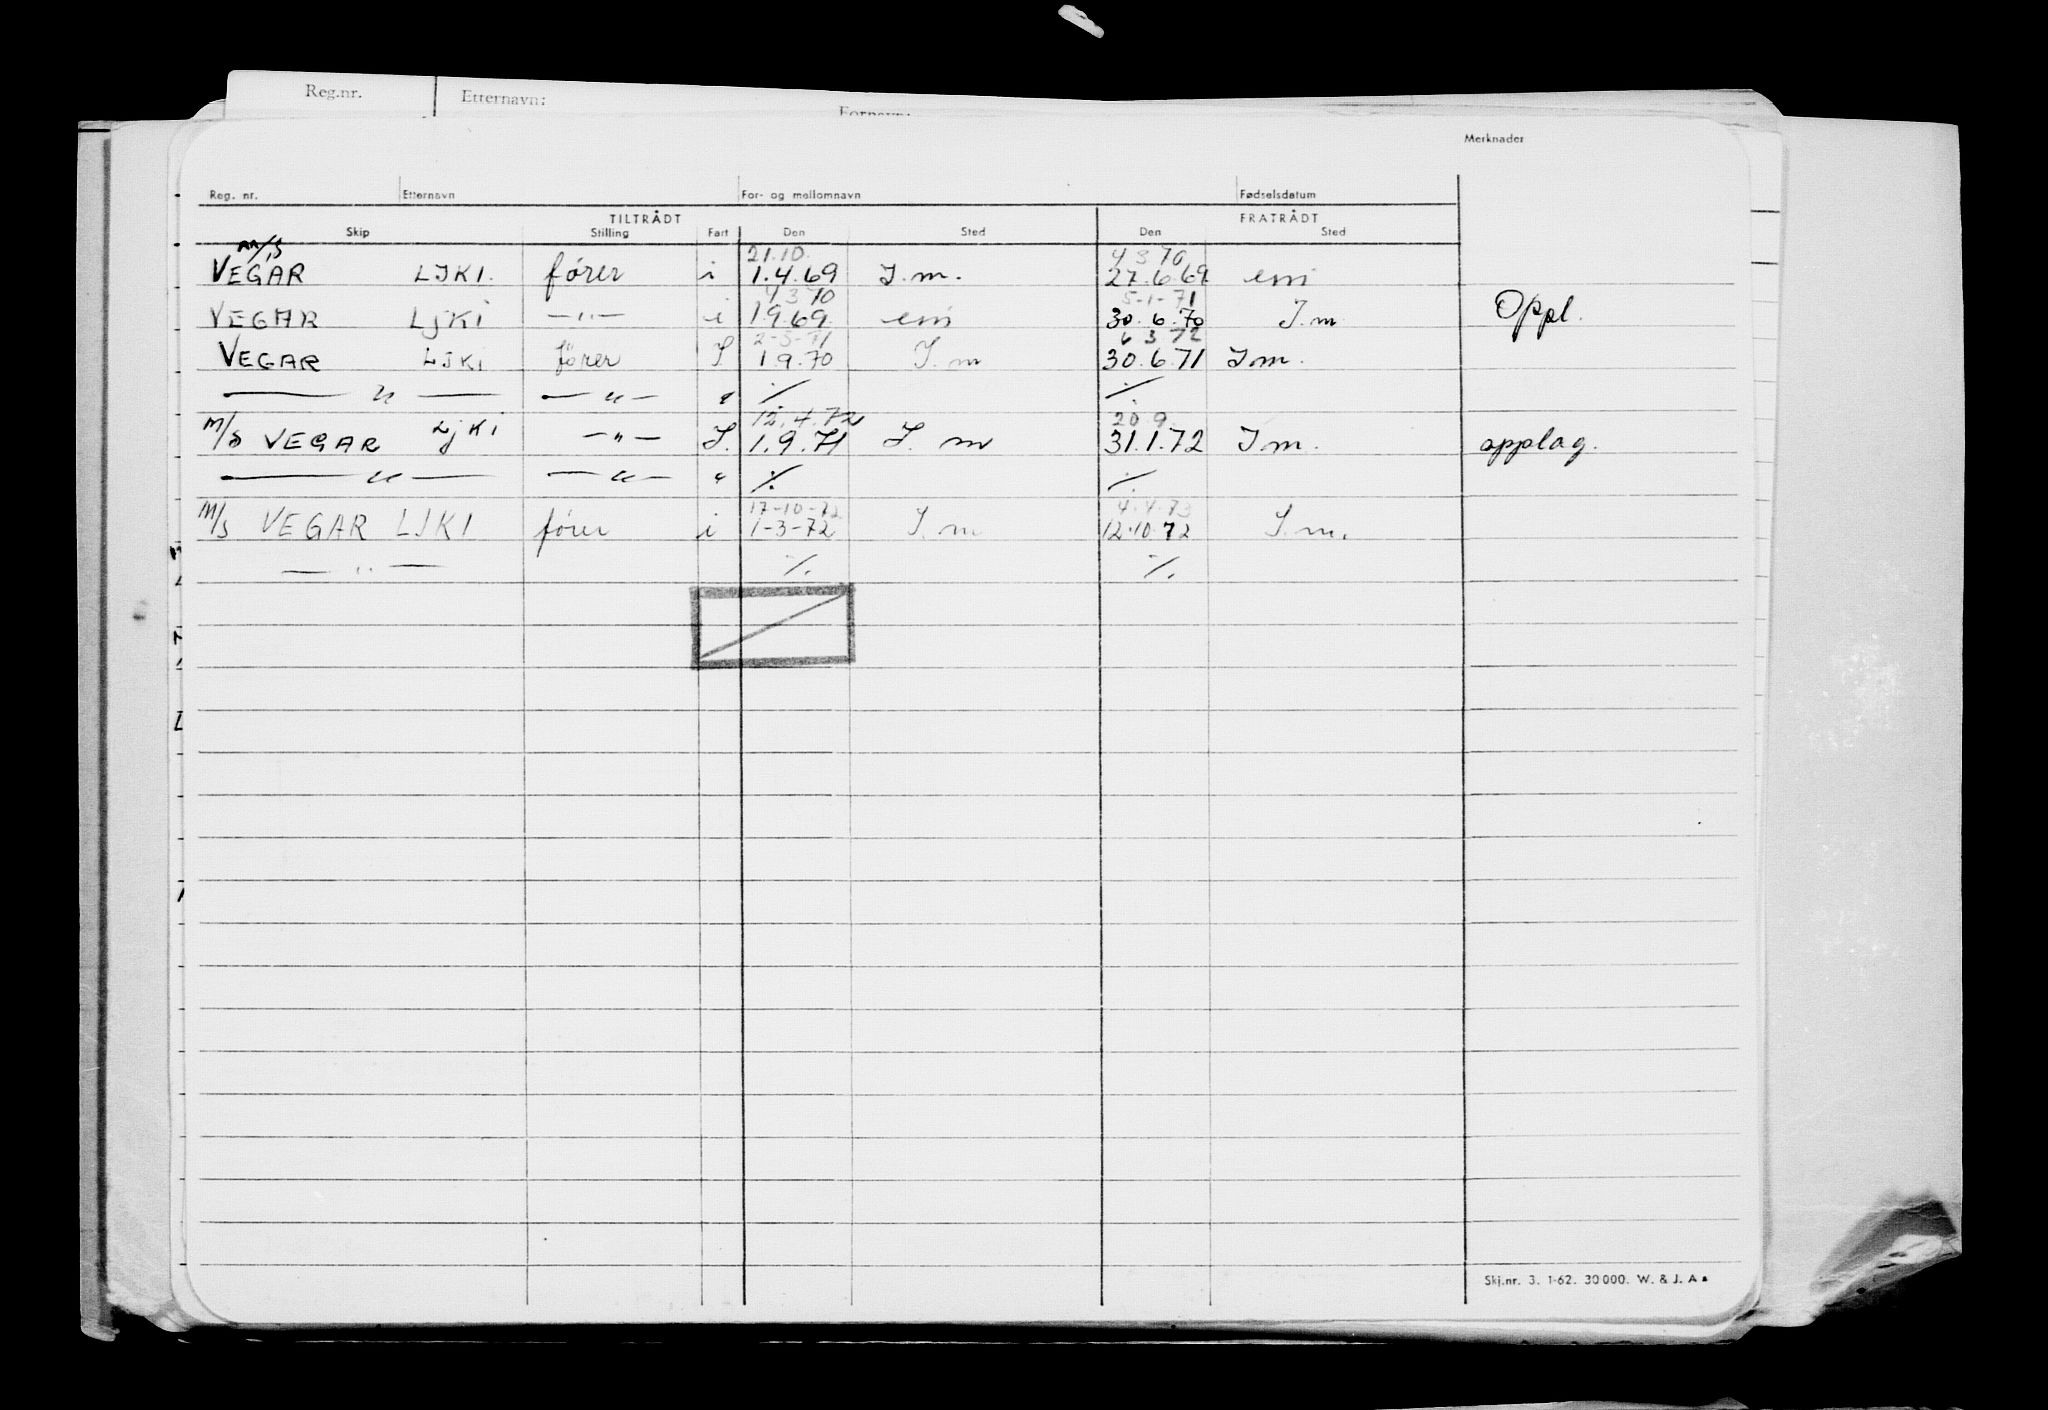 Reg.nr. Etternavn: Fornavn:
Merknader
Reg. nr. Etternavn For- og mellomnavn Fødselsdatum
TILTRÅDT FRATRÅDT
Skip Stilling Fart Den Sted Den Sted
M/S 21.10. 4 3 70
VEGAR LJKI. fører i 1.4.69 I.m. 27.6.69
4 3 70 5-1-71
VEGAR LJKI —"— i 1.9.69 30.6.70 I.m Oppl.
2-3-71 6 3 72
VEGAR LJKI fører I 1.9.70 I.m 30.6.71 I m.
— " — — " — " ./. ./.
12.4.72 20 9.
M/S VEGAR LJKI —"— I. 1.9.71 I. m 31.1.72 I m. opplag.
— " — — " — " ./. ./.
17-10-72 4.4.73
M/S VEGAR LJKI fører i 1-3-72 I. m 12.10.72 I. m.
— " — ./. ./.
Skj.nr. 3. 1-62. 30 000. W. & J. A